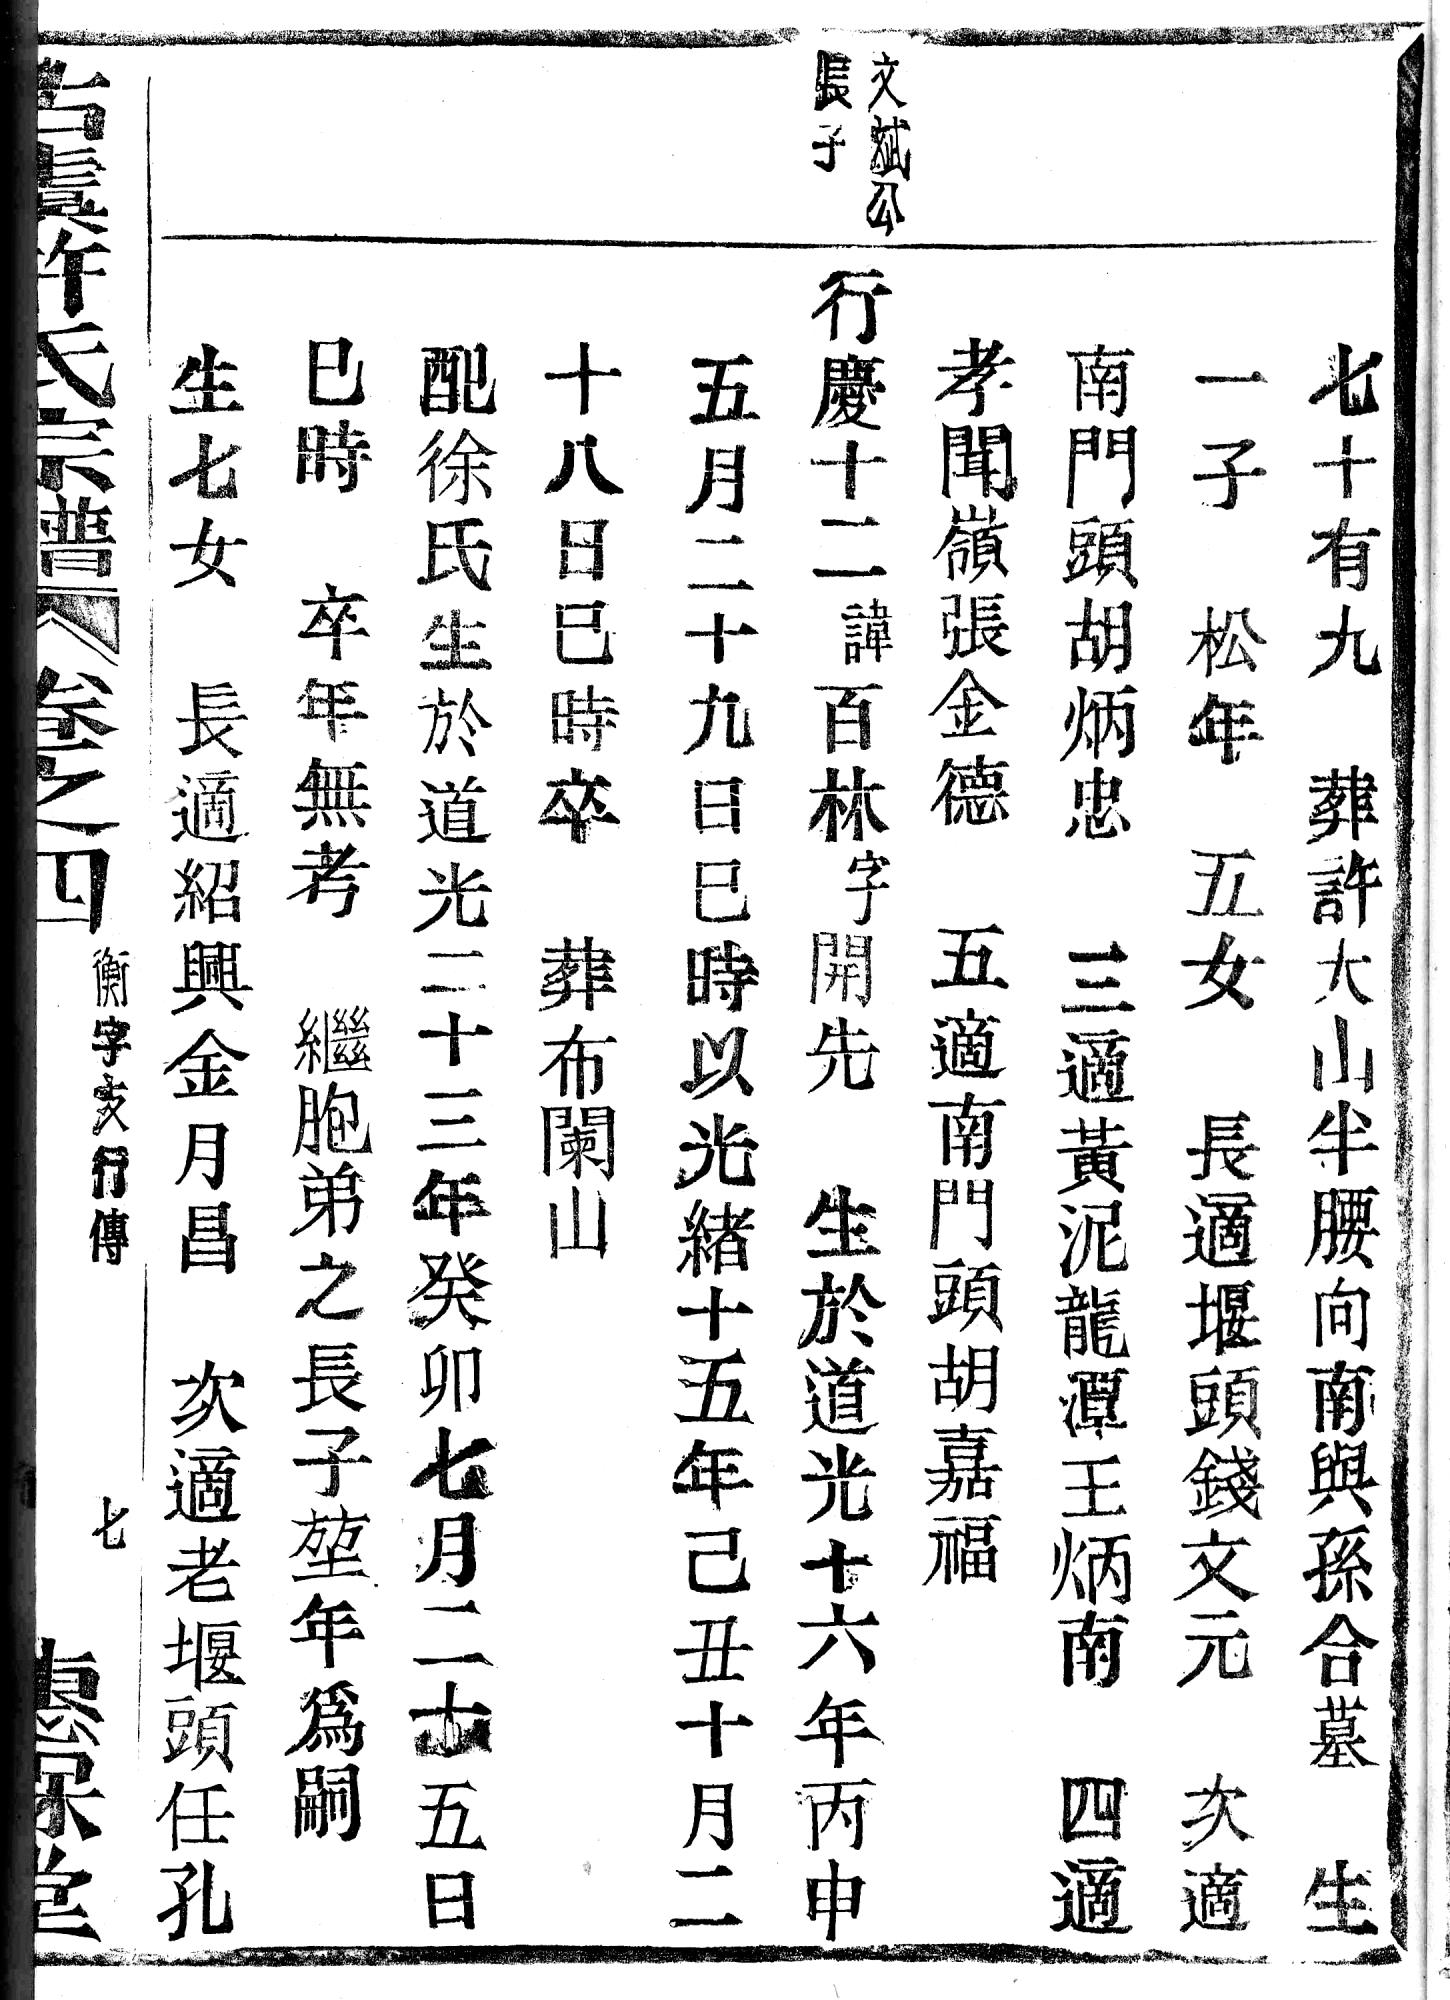 七十有九　葬許大山半腰向南與孫合墓　生
一子　松年　五女　長適堰頭錢文元　次適
南門頭胡炳忠　三適黃泥龍潭王炳南　四適
孝聞嶺張金德　五適南門頭胡嘉福
文斌公
長子
行慶十二諱百林字開先　生於道光十六年丙申
五月二十九日巳時以光緒十五年己丑十月二
十八日巳時卒　葬布闌山
配徐氏生於道光二十三年癸卯七月二十五日
巳時　卒年無考　繼胞弟之長子堃年爲嗣
生七女　長適紹興金月昌　次適老堰頭任孔
古虞許氏宗譜　卷之四　衡字支行傳　七　惠保堂